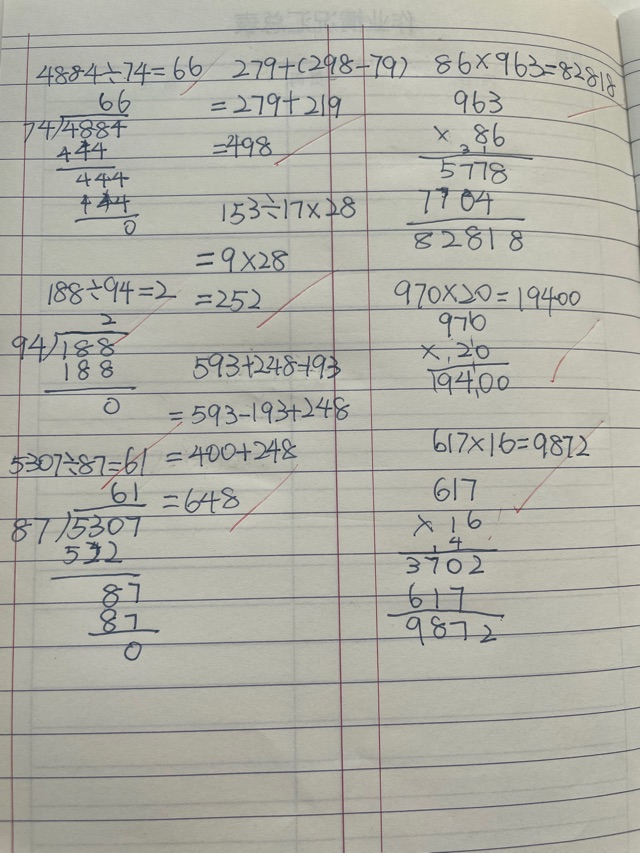 4884÷74=66
66
74)4884
444
444
444
0
188÷94=2
2
94)188
188
0
5307÷87=61
61
87)5307
522
87
87
0
279+(298-79)
=279+219
=498
153÷17×28
=9×28
=252
593+248-193
=593-193+248
=400+248
=648
86×963=82818
963
× 86
5778
7704
82818
970×20=19400
970
× 20
19400
617×16=9872
617
× 16
3702
617
9872